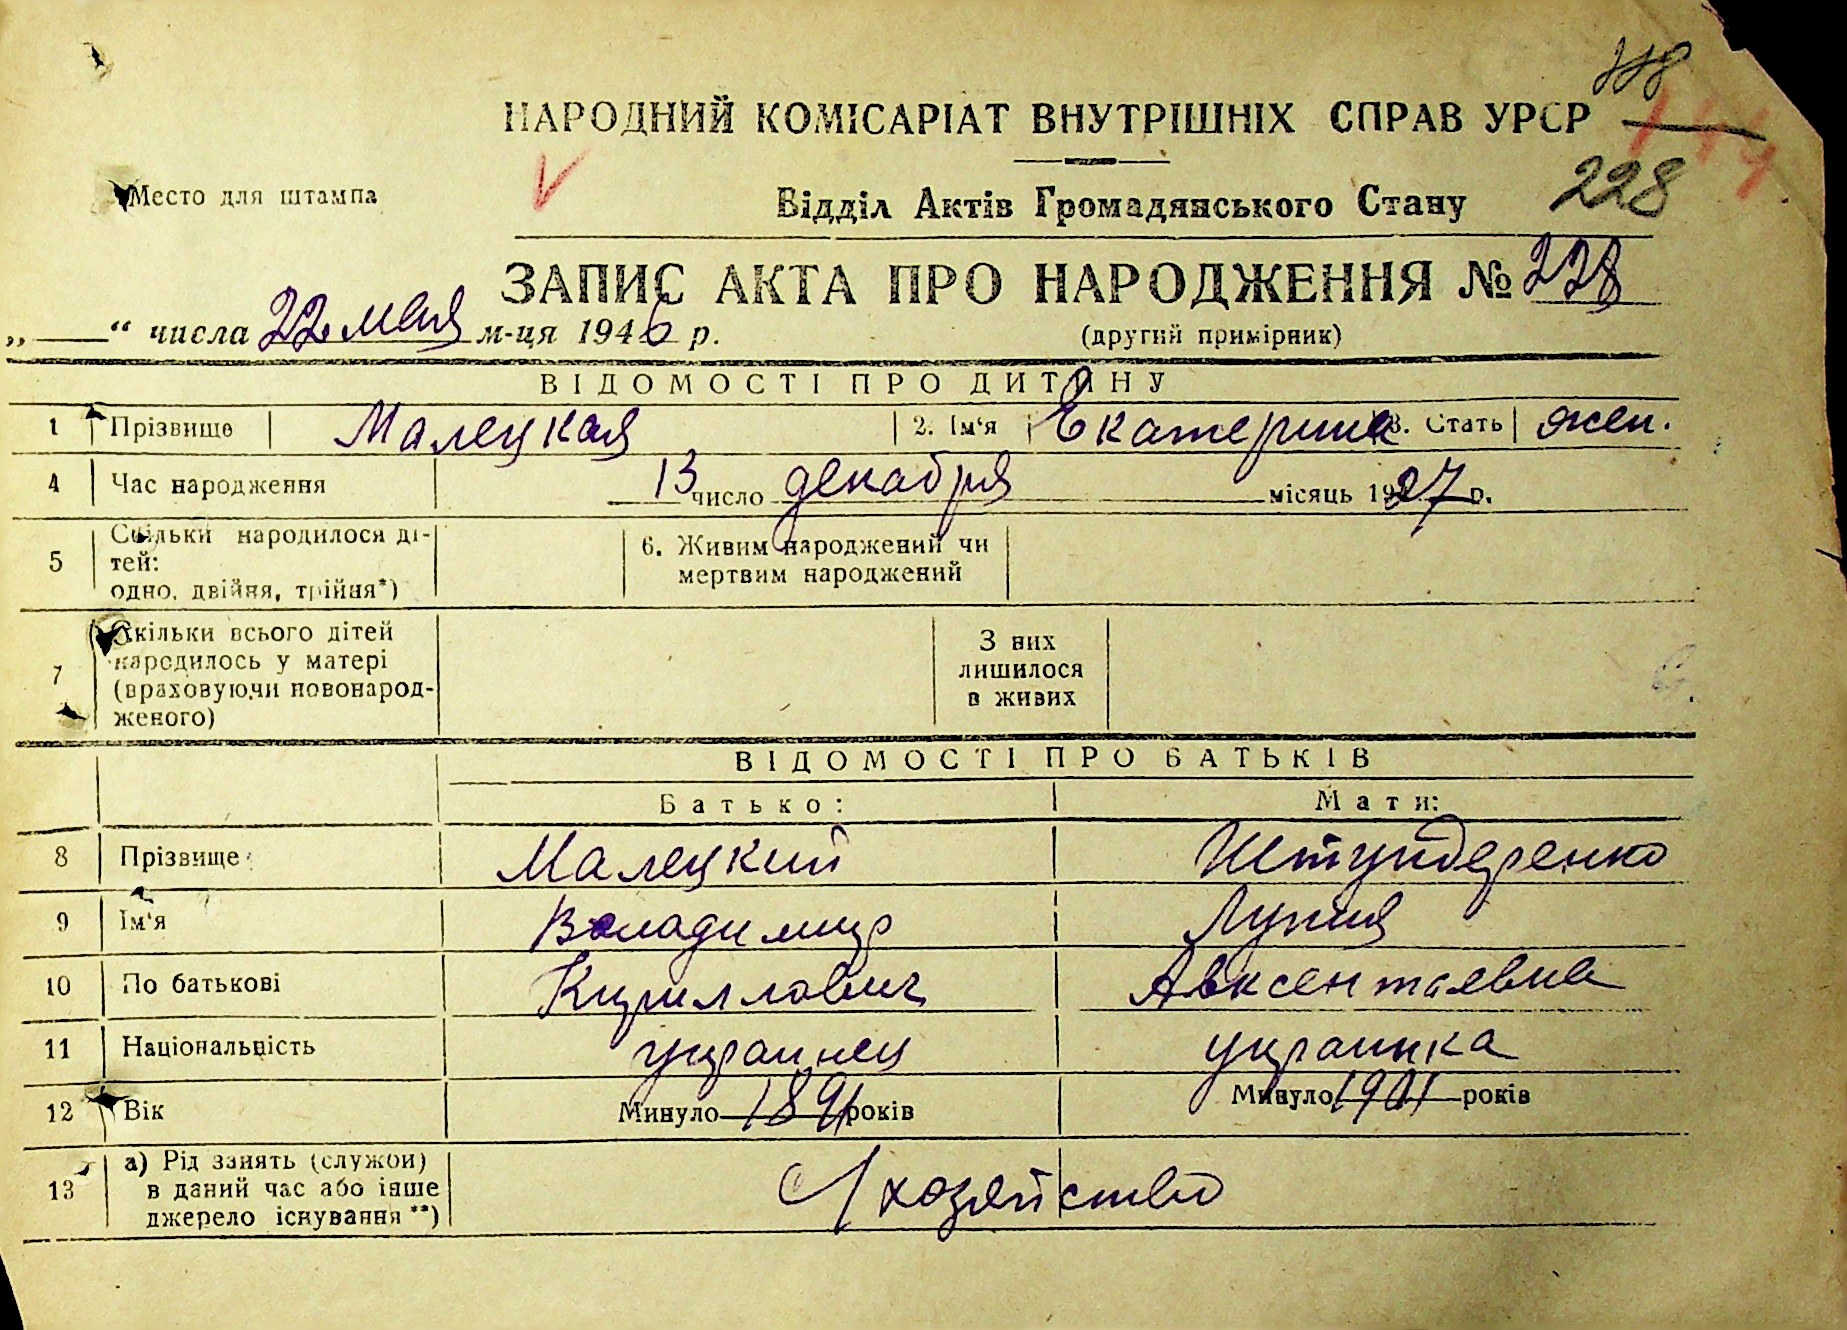 228
НАРОДНИЙ КОМІСАРІАТ ВНУТРІШНІХ СПРАВ УРСР
144
Место для штампа
Відділ Актів Громадянського Стану
228
ЗАПИС АКТА ПРО НАРОДЖЕННЯ № 228
„ “ числа 22 мая м-ця 1946 р.
(другий примірник)
ВІДОМОСТІ ПРО ДИТИНУ
1 Прізвище Малецкая 2. Ім‘я Екатерина 3. Стать жен.
4 Час народження 13 число декабря місяць 1927 р.
5 Скільки народилося ді-
тей:
одно, двійня, трійня*)
6. Живим народжений чи
мертвим народжений
7 Скільки всього дітей
народилось у матері
(враховуючи новонарод-
женого)
З них
лишилося
в живих
ВІДОМОСТІ ПРО БАТЬКІВ
Батько: Мати:
8 Прізвище Малецкий Штундеренко
9 Ім‘я Владимир Лукия
10 По батькові Кириллович Авксентьевна
11 Національність украинец украинка
12 Вік Минуло 1891 років Минуло 1901 років
13 а) Рід занять (служби)
в даний час або інше
джерело існування **)
С/хозяйство